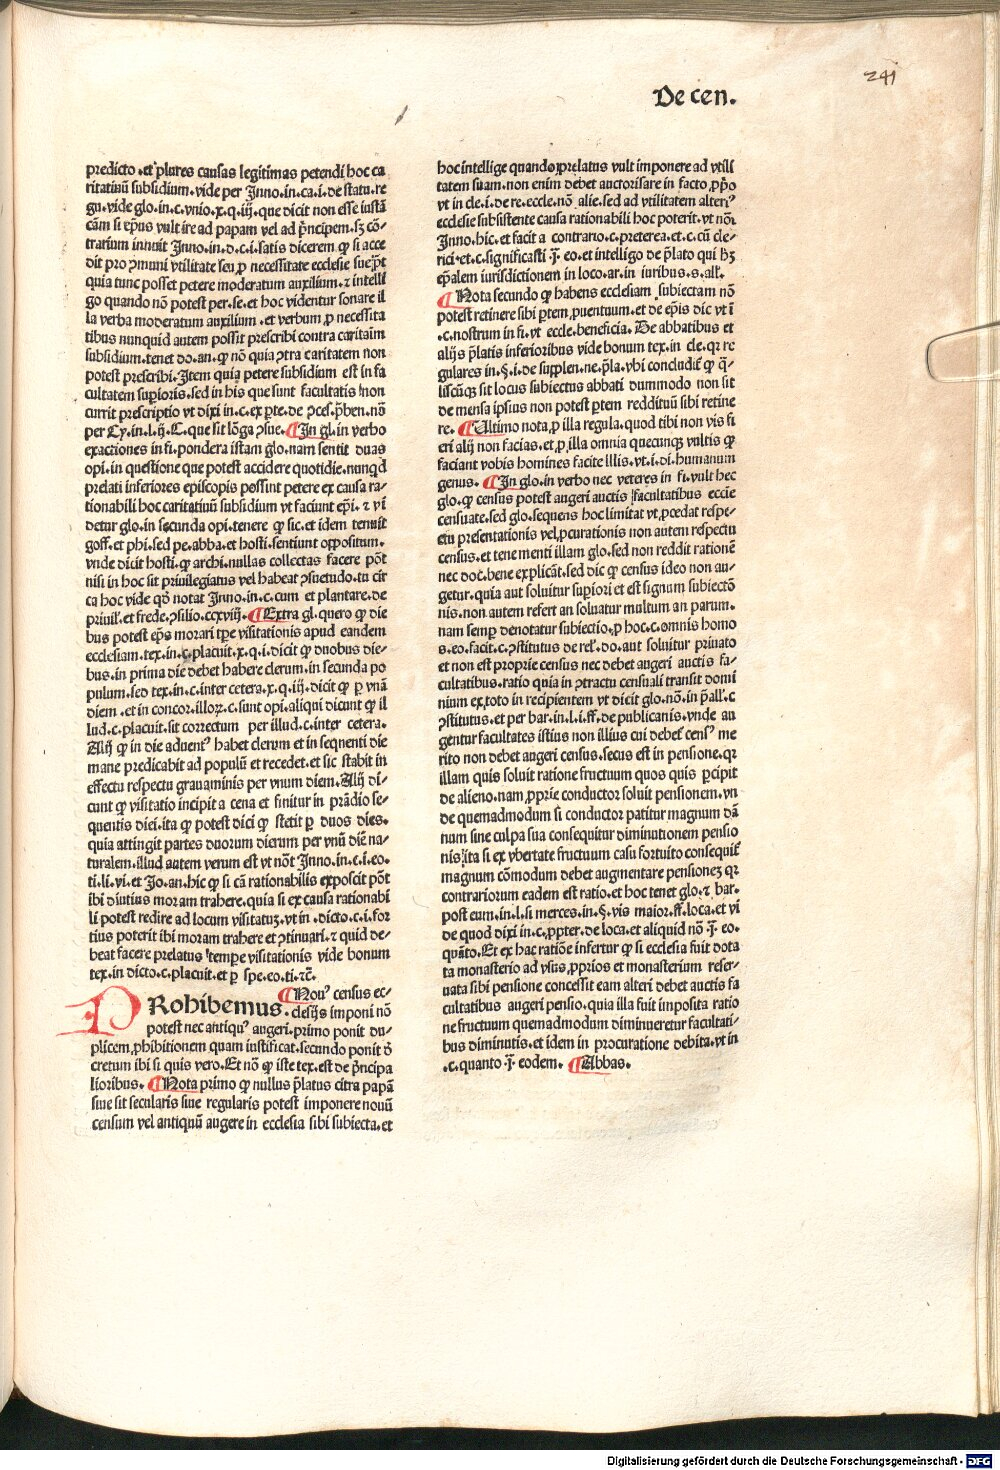 241
De cen.
predicto.et plures causas legitimas petendi hoc ca
ritatiuū subsidium.vide per Inno.in.ca.i.de statu.re
gu.vide glo.in.c.vnio.x.q.iij.que dicit non esse iustā
cām si ep̄us vult ire ad papam vel ad p̄ncipem.sꝫ cō⸗
trarium innuit Inno.in.d.c.i.satis dicerem ꝙ si acce
dit pro ꝯmuni vtilitate seu ꝓ necessitate ecclesie sue
quia tunc posset petere moderatum auxilium.⁊ intelli
go quando nō potest per.se.et hoc videntur sonare il
la verba moderatum auxilium.et verbum ꝓ necessita
tibus nunquid autem possit prescribi contra caritatiuū
subsidium.tenet do.an.ꝙ nō quia ꝯtra caritatem non
potest prescribi.Item quia petere subsidium est in fa
cultatem sup̲ioris.sed in his que sunt facultatis non
currit prescriptio vt dixi in.c.ex p̲te.de ꝯces.p̄ben.nō
per Cy.in.l.ij.C.que sit lōga ꝯsue.¶In gl.in verbo
exactiones in fi.pondera istam glo.nam sentit duas
opi.in questione que potest accidere quotidie.nunqd
prelati inferiores episcopis possint petere ex causa ra⸗
tionabili hoc caritatiuū subsidium vt faciunt ep̄i.⁊ vi
detur glo.in secunda opi.tenere ꝙ sic.et idem tenuit
goff.et phi.sed pe.abba.et hosti.sentiunt oppositum.
vnde dicit hosti.ꝙ archi.nullas collectas facere pōt
nisi in hoc sit priuilegiatus vel habeat ꝯsuetudo.tu cir
ca hoc vide qď notat Inno.in.c.cum et plantare.de
priuil.et frede.ꝯsilio.ccxviij.¶Extra gl.quero ꝙ die
bus potest ep̄s morari tp̄e visitationis apud eandem
ecclesiam.tex.in.c.placuit.x.q.i.dicit ꝙ duobus die⸗
bus.in prima die debet habere clerum.in secunda po
pulum.sed tex.in.c.inter cetera.x.q.iij.dicit ꝙ p̲ vnā
diem.et in concor.illoꝝ.c.sunt opi.aliqui dicunt ꝙ il
lud.c.placuit.sit correctum per illud.c.inter cetera.
Alij ꝙ in die aduentꝰ habet clerum et in seqnenti die
mane predicabit ad populū et recedet.et sic stabit in
effectu respectu grauaminis per vnum diem.Alij di⸗
cunt ꝙ visitatio incipit a cena et finitur in prādio se⸗
quentis diei.ita ꝙ potest dici ꝙ stetit p̲ duos dies.
quia attingit partes duorum dierum per vnū diē na⸗
turalem.illud autem verum est vt nōt Inno.in.c.i.eo.
ti.li.vi.et Jo.an.hic ꝙ si cā rationabilis exposcit pōt
ibi diutius moram trahere.quia si ex causa rationabi
li potest redire ad locum visitatuꝫ.vt in.dicto.c.i.for
tius poterit ibi moram trahere et ꝯtinuari.⁊ quid de⸗
beat facere prelatus tempe visitationis vide bonum
tex.in dicto.c.placuit.et p̲ spe.eo.ti.⁊c̄.
PRohibemus.¶Nouꝰ census ec⸗
clesijs imponi nō
potest nec antiquꝰ augeri.primo ponit du⸗
plicem,ꝓhibitionem quam iustificat.secundo ponit ď
cretum ibi si quis vero.Et nō ꝙ iste tex.est de p̄ncipa
lioribus.¶Nota primo ꝙ nullus p̄latus citra papā
siue sit secularis siue regularis potest imponere nouū
censum vel antiquū augere in ecclesia sibi subiecta.et
hoc intellige quando prelatus vult imponere ad vtili
tatem suam.non enim debet auctorisare in facto ꝓp̄o
vt in cle.i.de re.eccle.nō alie.sed ad vtilitatem alteriꝰ
ecclesie subsistente causa rationabili hoc poterit.vt nō.
Inno.hic.et facit a contrario.c.preterea.et.c.cū cle⸗
rici.et.c.significasti.j̄.eo.et intelligo de p̄lato qui hꝫ
ep̄alem iurisdictionem in loco.ar.in iuribus.s.all.
¶Nota secundo ꝙ habens ecclesiam subiectam nō
potest retinere sibi p̲tem ꝓuentuum.et de ep̄is dic vt i
.c.nostrum in fi.vt eccle.beneficia.De abbatibus et
alijs p̄latis inferioribus vide bonum tex.in cle.qr re
gulares in.§.i.de supplen.ne.p̄la.vbi concludit̄ ꝙ q̄⸗
liscūqꝫ sit locus subiectus abbati dummodo non sit
de mensa ipsius non potest p̲tem reddituū sibi retine
re.¶Ultimo nota ꝓ illa regula.quod tibi non vis fi
eri alij non facias.et ꝓ illa omnia quecunqꝫ vultis ꝙ
faciant vobis homines facite illis.vt.i.di.humanum
genus.¶In glo.in verbo nec veteres in fi.vult hec
glo.ꝙ census potest augeri auctis facultatibus eccīe
censuate.sed glo.sequens hoc limitat vt ꝓcedat respe⸗
ctu presentationis vel ꝓcurationis non autem respectu
census.et tene menti illam glo.sed non reddit rationē
nec doc.bene explicāt.sed dic ꝙ census ideo non au⸗
getur.quia aut soluitur sup̲iori et est signum subiectō
nis.non autem refert an soluatur multum an parum.
nam semp̲ denotatur subiectio.ꝓ hoc.c.omnis homo
s.eo.facit.c.ꝯstitutus de rel.do.aut soluitur priuato
et non est proprie census nec debet augeri auctis fa⸗
cultatibus.ratio quia in ꝯtractu censuali transit domi
nium ex toto in recipientem vt dicit glo.nō.in p̄all.c
ꝯstitutus.et per bar.in.l.i.ff.de publicanis.vnde au
gentur facultates istius non illius cui debet̄ censꝰ me
rito non debet augeri census.secus est in pensione.qr
illam quis soluit ratione fructuum quos quis p̲cipit
de alieno.nam ꝓprie conductor soluit pensionem.vn
de quemadmodum si conductor patitur magnum dā
num sine culpa sua consequitur diminutionem pensio
nis ita si ex vbertate fructuum casu fortuito consequit̄
magnum cōmodum debet augmentare pensioneꝫ qr
contrariorum eadem est ratio.et hoc tenet glo.⁊ bar.
post eum.in.l.si merces.in.§.vis maior.ff.loca.et vi
de quod dixi in.c.ꝓpter.de loca.et aliquid nō.j̄.eo.
quāto.Et ex hac ratiōe infertur ꝙ si ecclesia fuit dota
ta monasterio ad vsus ꝓprios et monasterium reser⸗
uata sibi pensione concessit eam alteri debet auctis fa
cultatibus augeri pensio.quia illa fuit imposita ratio
ne fructuum quemadmodum diminueretur facultati⸗
bus diminutis.et idem in procuratione debita.vt in
.c.quanto.j̄.eodem.¶Abbas.
Digitalisierung gefördert durch die Deutsche Forschungsgemeinschaft - DFG